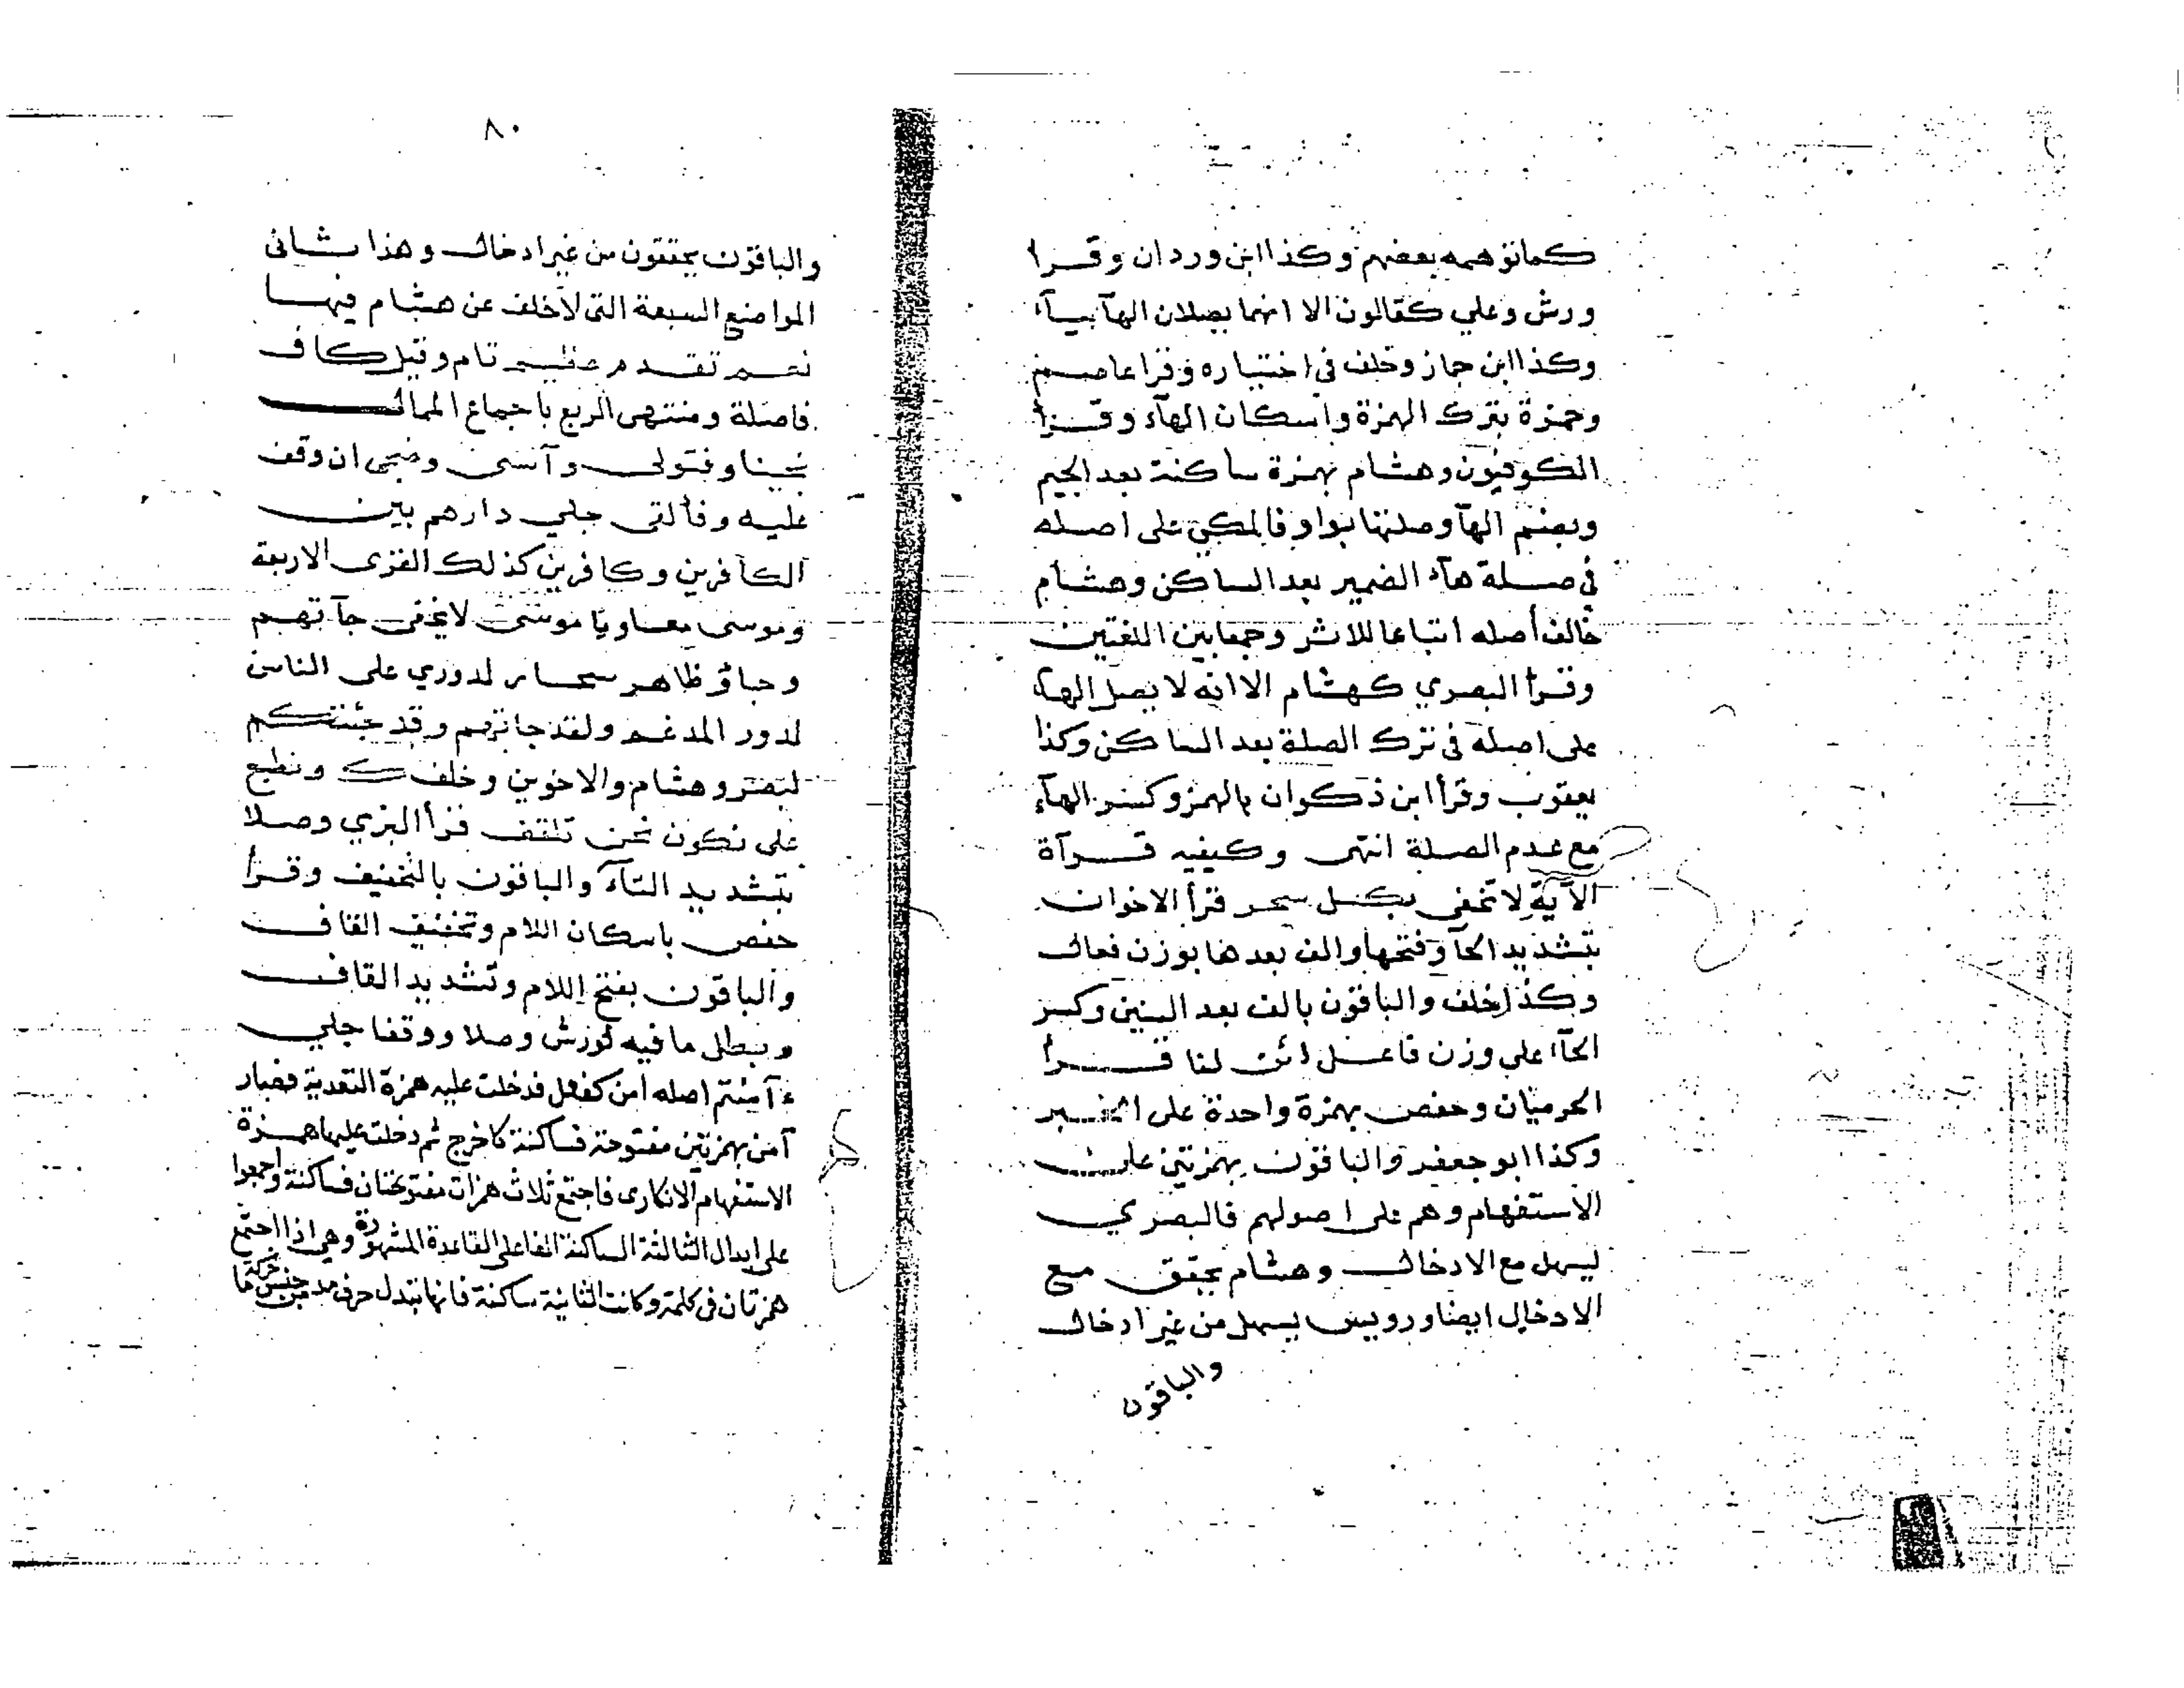 كما توهمه بعضهم وكذا ابن وردان وقرا
ورش وعلي كقالون الا انهما يصلان الهآ بيآء
وكذا ابن جماز وخلف في اختياره وقرا عاصم
وحمزة بترك الهمزة واسكان الهآء وقرا
المكوفيون وهشام بهمزة ساكنة بعد الجيم
وبضم الهآ وصلتها بواو فالمكي على اصله
في صلة هآء الضمير بعد الساكن وهشام
خالف أصله اتباعا للاثر وجمعا بين اللغتين
وقرأ البصري كهشام الا انه لا يصل الهآء
على اصله في ترك الصلة بعد الساكن وكذا
يعقوب وقرأ ابن ذكوان بالهمز وكسر الهآء
مع عدم الصلة انتهى وكيفيه قرآة
الآية لا تخفى بكل سحر قرأ الاخوان
بتشديد الحآ وفتحها والف بعدها بوزن فعال
وكذا خلف والباقون بالف بعد السين وكسر
الحآء على وزن فاعل ائن لنا قرأ
الحرميان وحفص بهمزة واحدة على الخبر
وكذا ابو جعفر والباقون بهمزتين على
الاستفهام وهم على اصولهم فالبصري
يسهل مع الادخال وهشام يحقق مع
الادخال ايضا ورويس يسهل من غير ادخال
والباقون
٨٠
والباقون يحققون من غير ادخال وهذا ثاني
المواضع السبعة التي لا خلف عن هشام فيها
نعم تقدم عظيم تام وقيل كاف
فاصلة ومنتهى الربع باجماع الممال
نجينا وفتولى وآسى وضحى ان وقف
عليه وفألقى جلي دارهم بين
الكافرين وكافرين كذلك القرى الاربعة
وموسى معا ويا موسى لا يخفى جآتهم
وجاؤ ظاهر سحار لدوري على الناس
لدور المدغم ولقد جاتهم وقد جئتكم
لبصر وهشام والاخوين وخلف ك ونطبع
على نكون نحن تلقف قرأ البزي وصلا
بتشديد التآء والباقون بالتخفيف وقرأ
حفص باسكان اللام وتخفيف القاف
والباقون بفتح اللام وتشديد القاف
وبطل ما فيه لورش وصلا ووقفا جلي
ءآمنتم اصله امن كفعل فدخلت عليه همزة التعدية فصار
آمن بهمزتين مفتوحة فساكنة كاخرج ثم دخلت عليها همزة
الاستفهام الانكارى فاجتمع ثلاث همزات مفتوحتان فساكنة واجمعوا
على ابدال الثالثة الساكنة الفا على القاعدة المشهورة وهي اذا اجتمع
همزتان في كلمة وكانت الثانية ساكنة فانها تبدل حرف مد من جنس حركة ما